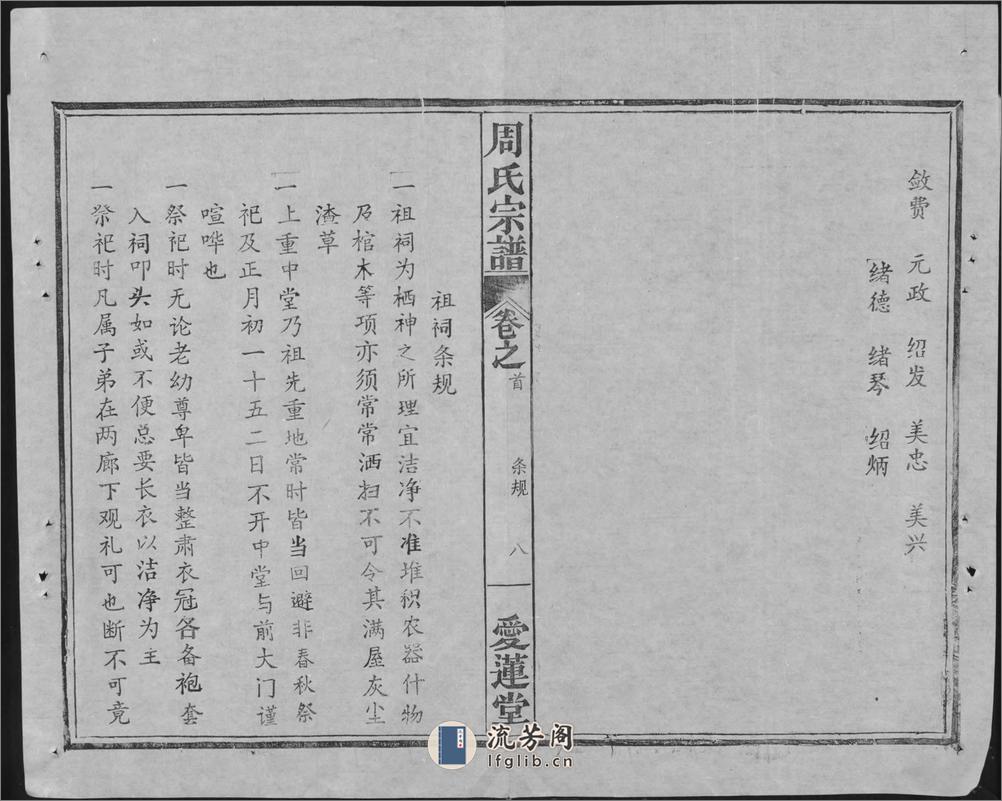 敛费 元政 绍发 美忠 美兴
绪德 绪琴 绍炳
周氏宗譜 卷之首 条规 八 愛蓮堂
祖祠条规
一祖祠为栖神之所理宜洁净不准堆积农器什物
及棺木等项亦须常常洒扫不可令其满屋灰尘
渣草
一上重中堂乃祖先重地常时皆当回避非春秋祭
祀及正月初一十五二日不开中堂与前大门谨
喧哗也
一祭祀时无论老幼尊卑皆当整肃衣冠各备袍套
入祠叩头如或不便总要长衣以洁净为主
一祭祀时凡属子弟在两廊下观礼可也断不可竟
流芳阁
lfglib.cn